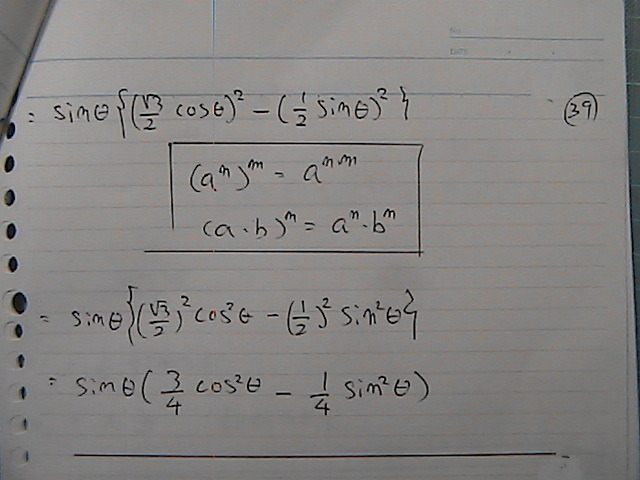 = sinθ{(√3/2 cosθ)² - (1/2 sinθ)²} (39)
(aⁿ)ᵐ = aⁿᵐ
(a·b)ⁿ = aⁿ·bⁿ
= sinθ{(√3/2)² cos²θ - (1/2)² sin²θ}
= sinθ(3/4 cos²θ - 1/4 sin²θ)